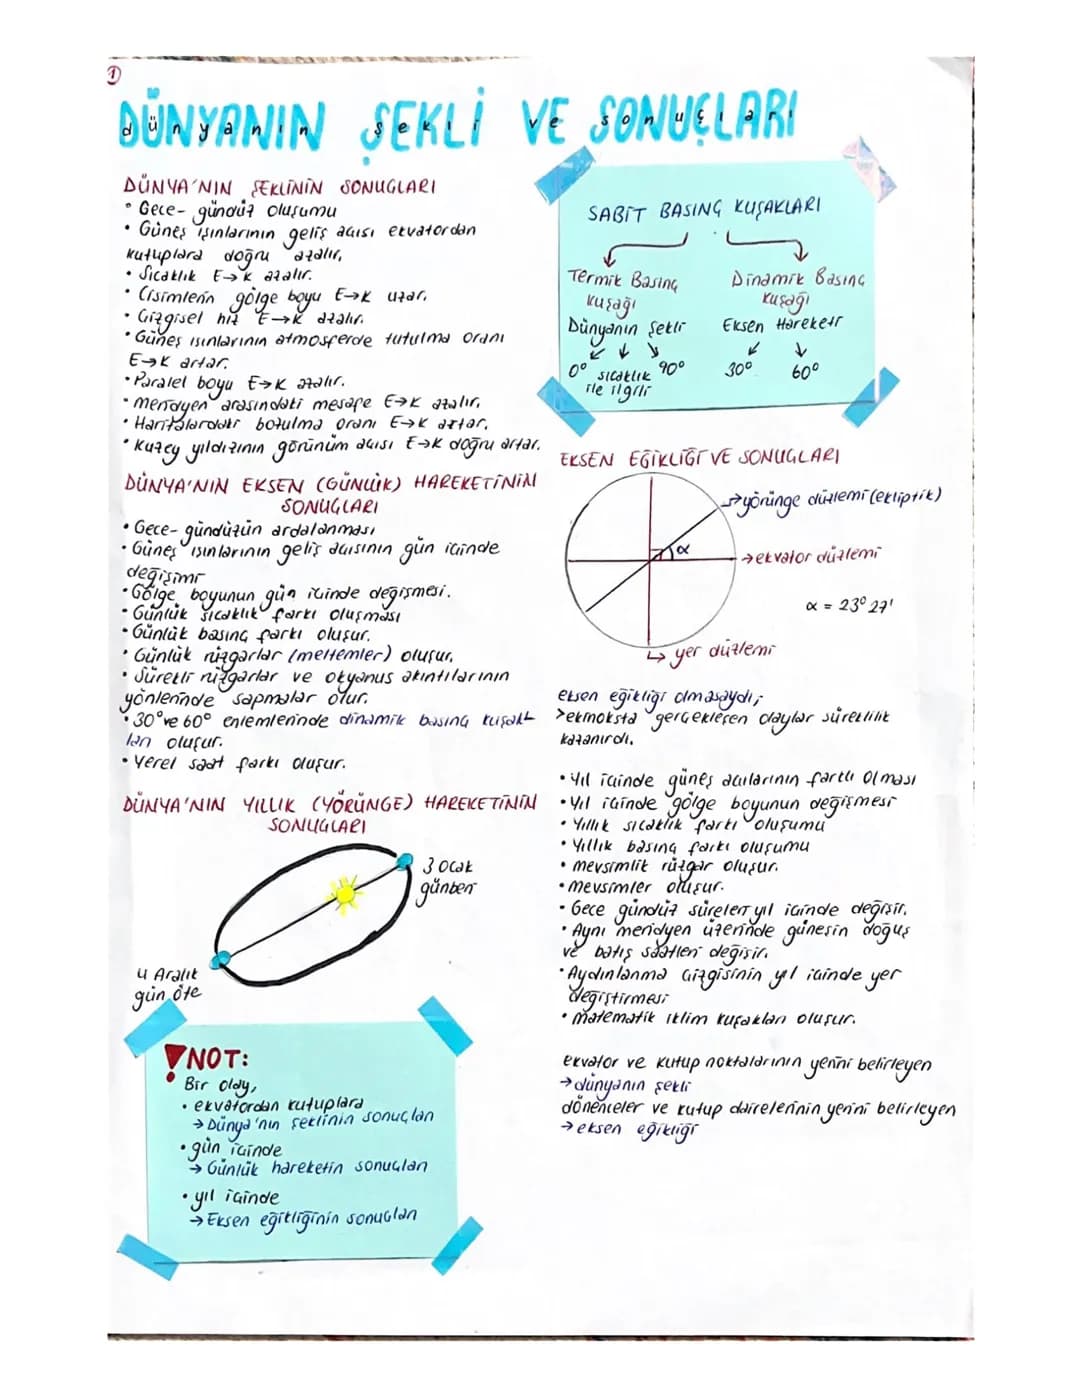 1
DÜNYANIN ŞEKLİ VE SONUÇLARI
dünyanın şekli ve sonuçları
DÜNYA'NIN ŞEKLİNİN SONUÇLARI
• Gece- gündüz oluşumu
• Güneş ışınlarının geliş açısı ekvatordan
kutuplara doğru azalır.
• Sıcaklık E→K azalır.
• Cisimlerin gölge boyu E→K uzar.
• Çizgisel hız E→K azalır.
• Güneş ışınlarının atmosferde tutulma oranı
E→K artar.
• Paralel boyu E→K azalır.
• meridyen arasındaki mesafe E→K azalır.
• Haritalardaki bozulma oranı E→K artar.
• Kuzey yıldızının görünüm açısı E→K doğru artar.
DÜNYA'NIN EKSEN (GÜNLÜK) HAREKETİNİN
SONUÇLARI
• Gece- gündüzün ardalanması
• Güneş ışınlarının geliş açısının gün içinde
değişimi
• Gölge boyunun gün içinde değişmesi.
• Günlük sıcaklık farkı oluşması
• Günlük basınç farkı oluşur.
• Günlük rüzgarlar (meltemler) oluşur.
• Sürekli rüzgarlar ve okyanus akıntılarının
yönlerinde sapmalar olur.
• 30° ve 60° enlemlerinde dinamik basınç kuşak-
ları oluşur.
• Yerel saat farkı oluşur.
DÜNYA'NIN YILLIK (YÖRÜNGE) HAREKETİNİN
SONUÇLARI
3 Ocak
günberi
4 Aralık
gün öte
! NOT:
Bir olay,
• ekvatordan kutuplara
→ Dünya'nın şeklinin sonuçları
• gün içinde
→ Günlük hareketin sonuçları
• yıl içinde
→ Eksen eğikliğinin sonuçları
SABİT BASINÇ KUŞAKLARI
Termik Basınç
Kuşağı
Dünyanın Şekli
0° sıcaklık 90°
ile ilgili
Dinamik Basınç
Kuşağı
Eksen Hareketi
30° 60°
EKSEN EĞİKLİĞİ VE SONUÇLARI
→ yörünge düzlemi (ekliptik)
α
→ ekvator düzlemi
α = 23° 27'
↳ yer düzlemi
eksen eğikliği olmasaydı;
>ekinoksta gerçekleşen olaylar süreklilik
kazanırdı.
• Yıl içinde güneş açılarının farklı olması
• Yıl içinde gölge boyunun değişmesi
• Yıllık sıcaklık farkı oluşumu
• Yıllık basınç farkı oluşumu
• mevsimlik rüzgar oluşur.
• mevsimler oluşur.
• Gece gündüz süreleri yıl içinde değişir.
• Aynı meridyen üzerinde güneşin doğuş
ve batış saatleri değişir.
• Aydınlanma çizgisinin yıl içinde yer
değiştirmesi
• matematik iklim kuşakları oluşur.
ekvator ve kutup noktalarının yerini belirleyen
→ dünyanın şekli
dönenceler ve kutup dairelerinin yerini belirleyen
→ eksen eğikliği